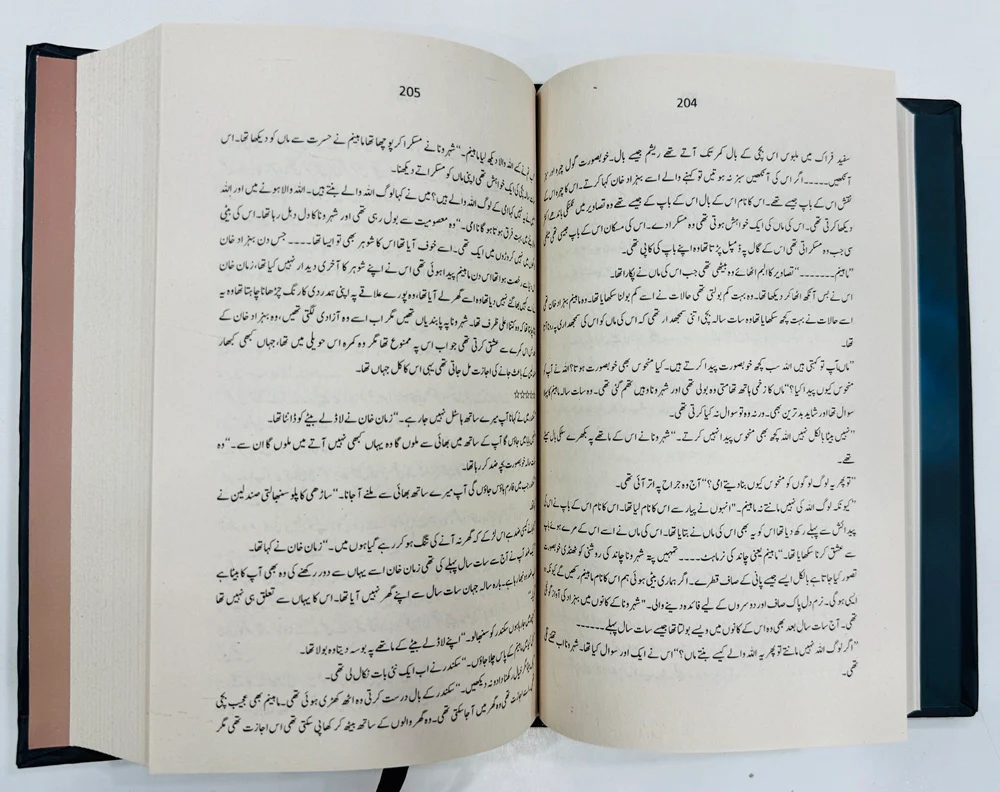 204
سفید فراک میں ملبوس اس بچی کے بال کمر تک آتے تھے ریشم جیسے بال۔ خوبصورت گول چہرہ اور
آنکھیں۔۔۔۔۔اگر اس کی آنکھیں سبز نہ ہوتیں تو کہنے والے اسے بہزاد خان کہا کرتے۔ اس کا چہرہ اس کے
نقش اس کے باپ جیسے تھے۔ اس کا نام اس کے بال اس کے باپ کے جیسے تھے وہ تصاویر میں
دیکھا کرتی تھی۔ اس کی ماں کی ایک خواہش ہوتی تھی وہ مسکرا دے۔ اس کی مسکان اس کے باپ جیسی تھی
سی جب وہ مسکراتی تھی اس کے گال پہ ڈمپل پڑتا تھا وہ اپنے باپ کی کاپی تھی۔
"ماہینم۔۔۔۔۔۔۔" تصاویر کا البم اٹھائے وہ بیٹھی تھی جب اس کی ماں نے پکارا تھا۔
اس نے بس آنکھ اٹھا کر دیکھا تھا۔ وہ بہت کم بولتی تھی حالات نے اسے کم بولنا سکھایا تھا۔ وہ ماہینم بہزاد خان تھی
اسے حالات نے بہت کچھ سکھایا تھا وہ سات سالہ بچی اتنی سمجھدار تھی کہ اس کی ماں کو اس کی سمجھداری پہ رونا آتا
تھا۔
"ماں آپ تو کہتی ہیں اللہ سب کچھ خوبصورت پیدا کرتے ہیں۔ کیا منحوس بھی خوبصورت ہوتا؟ اللہ نے آپ کو
منحوس کیوں پیدا کیا؟" ماں کا زخمی ہاتھ تھامتی وہ بولی تھی اور شہرونا وہیں تھم گئی تھی۔ وہ سات سالہ ماہینم کا پہلا
سوال تھا اور شاید بدترین بھی۔ ورنہ وہ تو سوال نہ کیا کرتی تھی۔
"نہیں بیٹا بالکل نہیں اللہ کچھ بھی منحوس پیدا نہیں کرتے۔" شہرونا نے اس کے ماتھے پہ بکھرے سبکی بال سمیٹے
تھے۔
"تو پھر یہ لوگ لوگوں کو منحوس کیوں بنا دیتے امی؟" آج وہ جراح پہ اتر آئی تھی۔
"کیونکہ لوگ اللہ کی نہیں مانتے نہ ماہینم۔" انہوں نے پیار سے اس کا نام لیا تھا۔ اس کا نام اس کے باپ نے اس کی
پیدائش سے پہلے رکھ دیا تھا اس کو یہ بھی اس کی ماں نے بتایا تھا۔ اس کی ماں نے اسے اس کے مرے ہوئے باپ
سے عشق کرنا سکھایا تھا۔ "ماہینم یعنی چاند کی نرماہٹ۔۔۔۔تمہیں پتہ شہرونا چاند کی روشنی کو ٹھنڈی خوبصورت
تصور کیا جاتا ہے بالکل ایسے جیسے پانی کے صاف قطرے۔ اگر ہماری بیٹی ہوئی ہم اس کا نام ماہینم رکھیں گے کیونکہ وہ
ایسی ہو گی۔ نرم دل پاک صاف اور دوسروں کے لیے فائدہ دینے والی۔" شہرونا کے کانوں میں بہزاد کی آواز گونجی
تھی۔ آج سات سال بعد بھی وہ اس کے کانوں میں ویسے بولتا تھا جیسے سات سال پہلے۔۔۔۔۔۔۔
"اگر لوگ اللہ نہیں مانتے تو پھر یہ اللہ والے کیسے بنتے ماں؟" اس نے ایک اور سوال کیا تھا۔ شہرونا اب
تھی۔
205
کے اللہ والا دیکھ لیا ماہینم۔" شہرونا نے مسکرا کر پوچھا تھا ماہینم نے حسرت سے ماں کو دیکھا تھا۔ اس
کی ایک خواہش تھی اپنی ماں کو مسکراتے دیکھنا۔
یہ نہیں کہا امی کے لوگ اللہ والے بنتے ہیں؟ میں نے کہا لوگ اللہ والے بنتے ہیں۔ اللہ والا ہونے میں اور اللہ
میں بہت فرق ہوتا ہو گا نا امی۔" وہ معصومیت سے بول رہی تھی اور شہرونا کا دل دہل رہا تھا۔ اس کی بیٹی
میں نہیں کروڑوں میں ایک تھی۔ اسے خوف آیا تھا اس کا شوہر بھی تو ایسا تھا۔۔۔۔ جس دن بہزاد خان
رخصت ہوا تھا اس دن ماہینم پیدا ہوئی تھی اس نے اپنے شوہر کا آخری دیدار نہیں کیا تھا، زمان خان
نہیں دیا تھا وہ اسے گھر لے آیا تھا، وہ پورے علاقے پہ اپنی ہمدردی کا رنگ چڑھانا چاہتا تھا وہ یہ
تھا کہ وہ کتنا اعلی ظرف تھا۔ شہرونا پہ پابندیاں تھیں مگر اب اسے وہ آزادی لگتی تھیں، وہ بہزاد خان کے
اس کمرے سے عشق کرتی تھی جو اب اس پہ ممنوع تھا مگر وہ کمرہ اس حویلی میں تھا، جہاں کبھی کبھار
کے باعث جانے کی اجازت مل جاتی تھی یہی اس کا کل جہاں تھا۔
☆☆☆☆☆
میں نے کہا نا آپ میرے ساتھ ہاسٹل نہیں جا رہے۔" زمان خان نے لاڈلے بیٹے کو ڈانٹا تھا۔
میں جاؤں گا آپ کے ساتھ میں بھائی سے ملوں گا وہ یہاں کبھی نہیں آتے میں ملوں گا ان سے۔" وہ
خوبصورت بچہ ضد کر رہا تھا۔
جب میں فارم ہاؤس جاؤں گی آپ میرے ساتھ بھائی سے ملنے آ جانا۔" ساڑھی کا پلو سنبھالتی صندلین نے
ضد ہے اس لڑکے کہ گھر نہ آنے کی تنگ ہو کر رہ گیا ہوں میں۔" زمان خان نے کہا تھا۔
آپ نے آج سے سات سال پہلے کی تھی زمان خان اسے یہاں سے دور رکھنے کی وہ بھی آپ کا بیٹا ہے
نبھا رہا ہے۔ بارہ سالہ جہان سات سال سے اپنے گھر نہیں آیا تھا۔ اس کا یہاں سے تعلق ہی نہیں تھا
جا رہا ہوں سکندر کو سنبھالو۔" اپنے لاڈلے بیٹے کے ماتھے پہ بوسہ دیتا وہ بولا تھا۔
ماہینم کے پاس چلا جاؤں۔" سکندر نے اب ایک نئی بات نکال لی تھی۔
خیال رکھنا دادو نہ دیکھیں۔" سکندر کے بال درست کرتی وہ اٹھ کھڑی ہوئی تھی۔ ماہینم بھی عجیب بچی
تھی وہ گھر میں آ جا سکتی تھی۔ وہ گھر والوں کے ساتھ بیٹھ کر کھا پی سکتی تھی اس اجازت تھی مگر